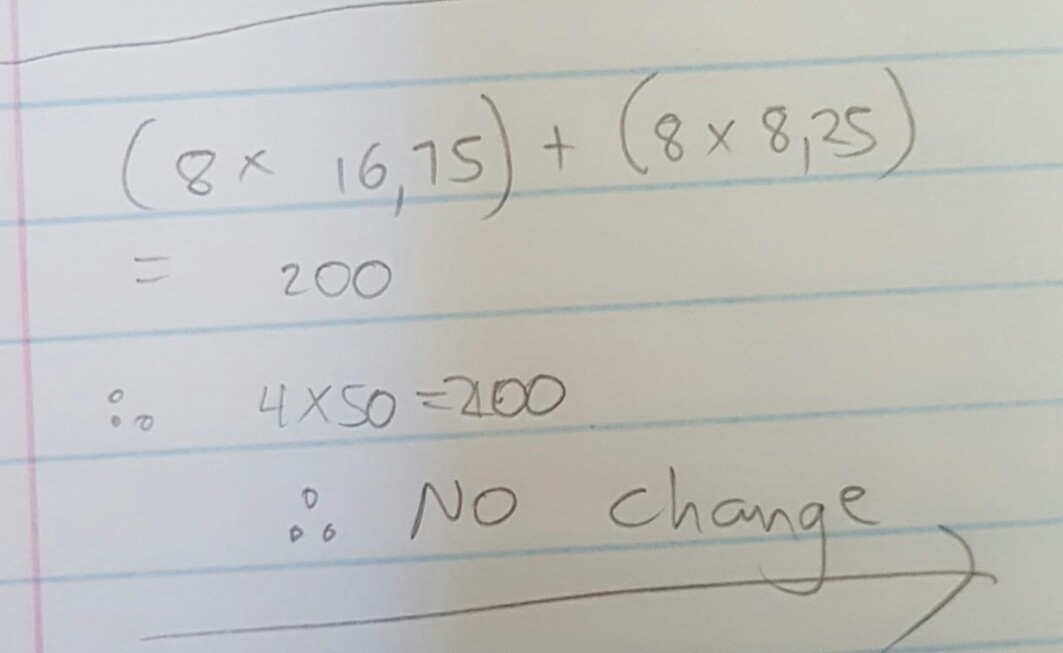 (8 × 16,75) + (8 × 8,25)
= 200
∴ 4×50=200
∴ No change